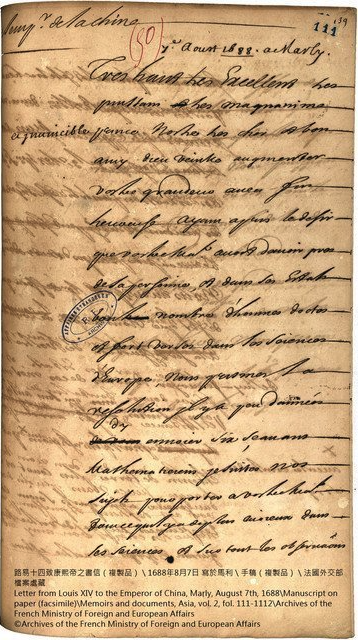 Emp.r de la chine
(50)
39
111
7.e Aoust 1688. a Marly.
Tres haut tres Excellent tres
puissant tres magnanime
et invincible prince Nostre tres cher et bon
amy dieu veuille augmenter
vostre grandeur avec fin
heureuse ayant apris le desir
que vostre
de sa personne et dans ses Estats
nombre d'hommes doctes
et fort versez dans les sciences
d'Europe. Nous prismes la
resolution il y a
d'y envoyer six scavans
Mathematiciens jesuites nos
sujets pour porter a vostre
les sciences et sur tout les observations
路易十四致康熙帝之書信（複製品）\ 1688年8月7日 寫於馬利 \ 手稿（複製品）\ 法國外交部
檔案處藏
Letter from Louis XIV to the Emperor of China, Marly, August 7th, 1688\Manuscript on
paper (facsimile)\Memoirs and documents, Asia, vol. 2, fol. 111-112\Archives of the
French Ministry of Foreign and European Affairs
©Archives of the French Ministry of Foreign and European Affairs